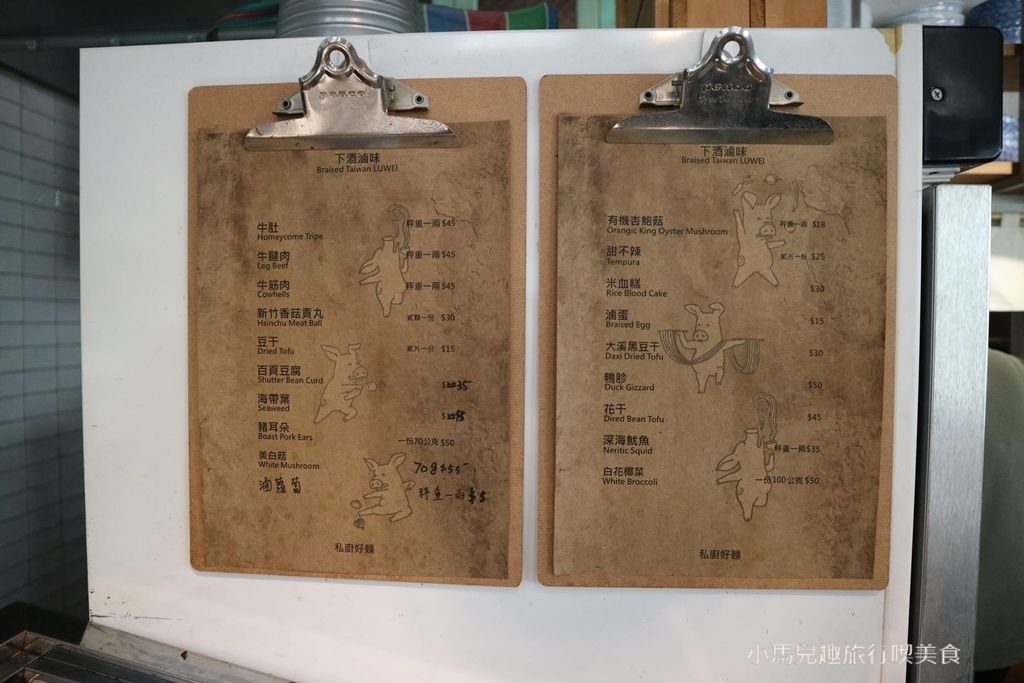 penco
下酒滷味
Braised Taiwan LUWEI
牛肚
Homeycome Tripe
秤重一兩 $45
牛腱肉
Leg Beef
秤重一兩 $45
牛筋肉
Cowhells
秤重一兩 $45
新竹香菇貢丸
Hsinchu Meat Ball
貳顆一份 $30
豆干
Dried Tofu
貳片一份 $15
百頁豆腐
Shutter Bean Curd
35
海帶葉
Seaweed
豬耳朵
Boast Pork Ears
一份70公克 $50
美白菇
White Mushroom
70g $55
滷蘿蔔
秤重一兩 $5
私廚好麵
penco
下酒滷味
Braised Taiwan LUWEI
有機杏鮑菇
Orangic King Oyster Mushroom
秤重一兩 $18
甜不辣
Tempura
貳片一份 $25
米血糕
Rice Blood Cake
$30
滷蛋
Braised Egg
$15
大溪黑豆干
Daxi Dried Tofu
$30
鴨胗
Duck Gizzard
$50
花干
Dired Bean Tofu
$45
深海魷魚
Neritic Squid
秤重一兩$35
白花椰菜
White Broccoli
一份100公克 $50
私廚好麵
小馬兒趣旅行喫美食